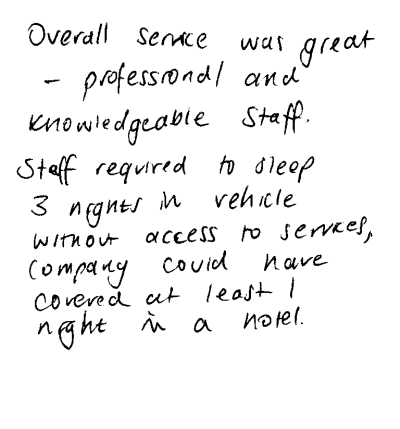 Overall service was great
- professional and
knowledgeable staff.
Staff required to sleep
3 nights in vehicle
without access to services,
company could have
covered at least 1
night in a hotel.